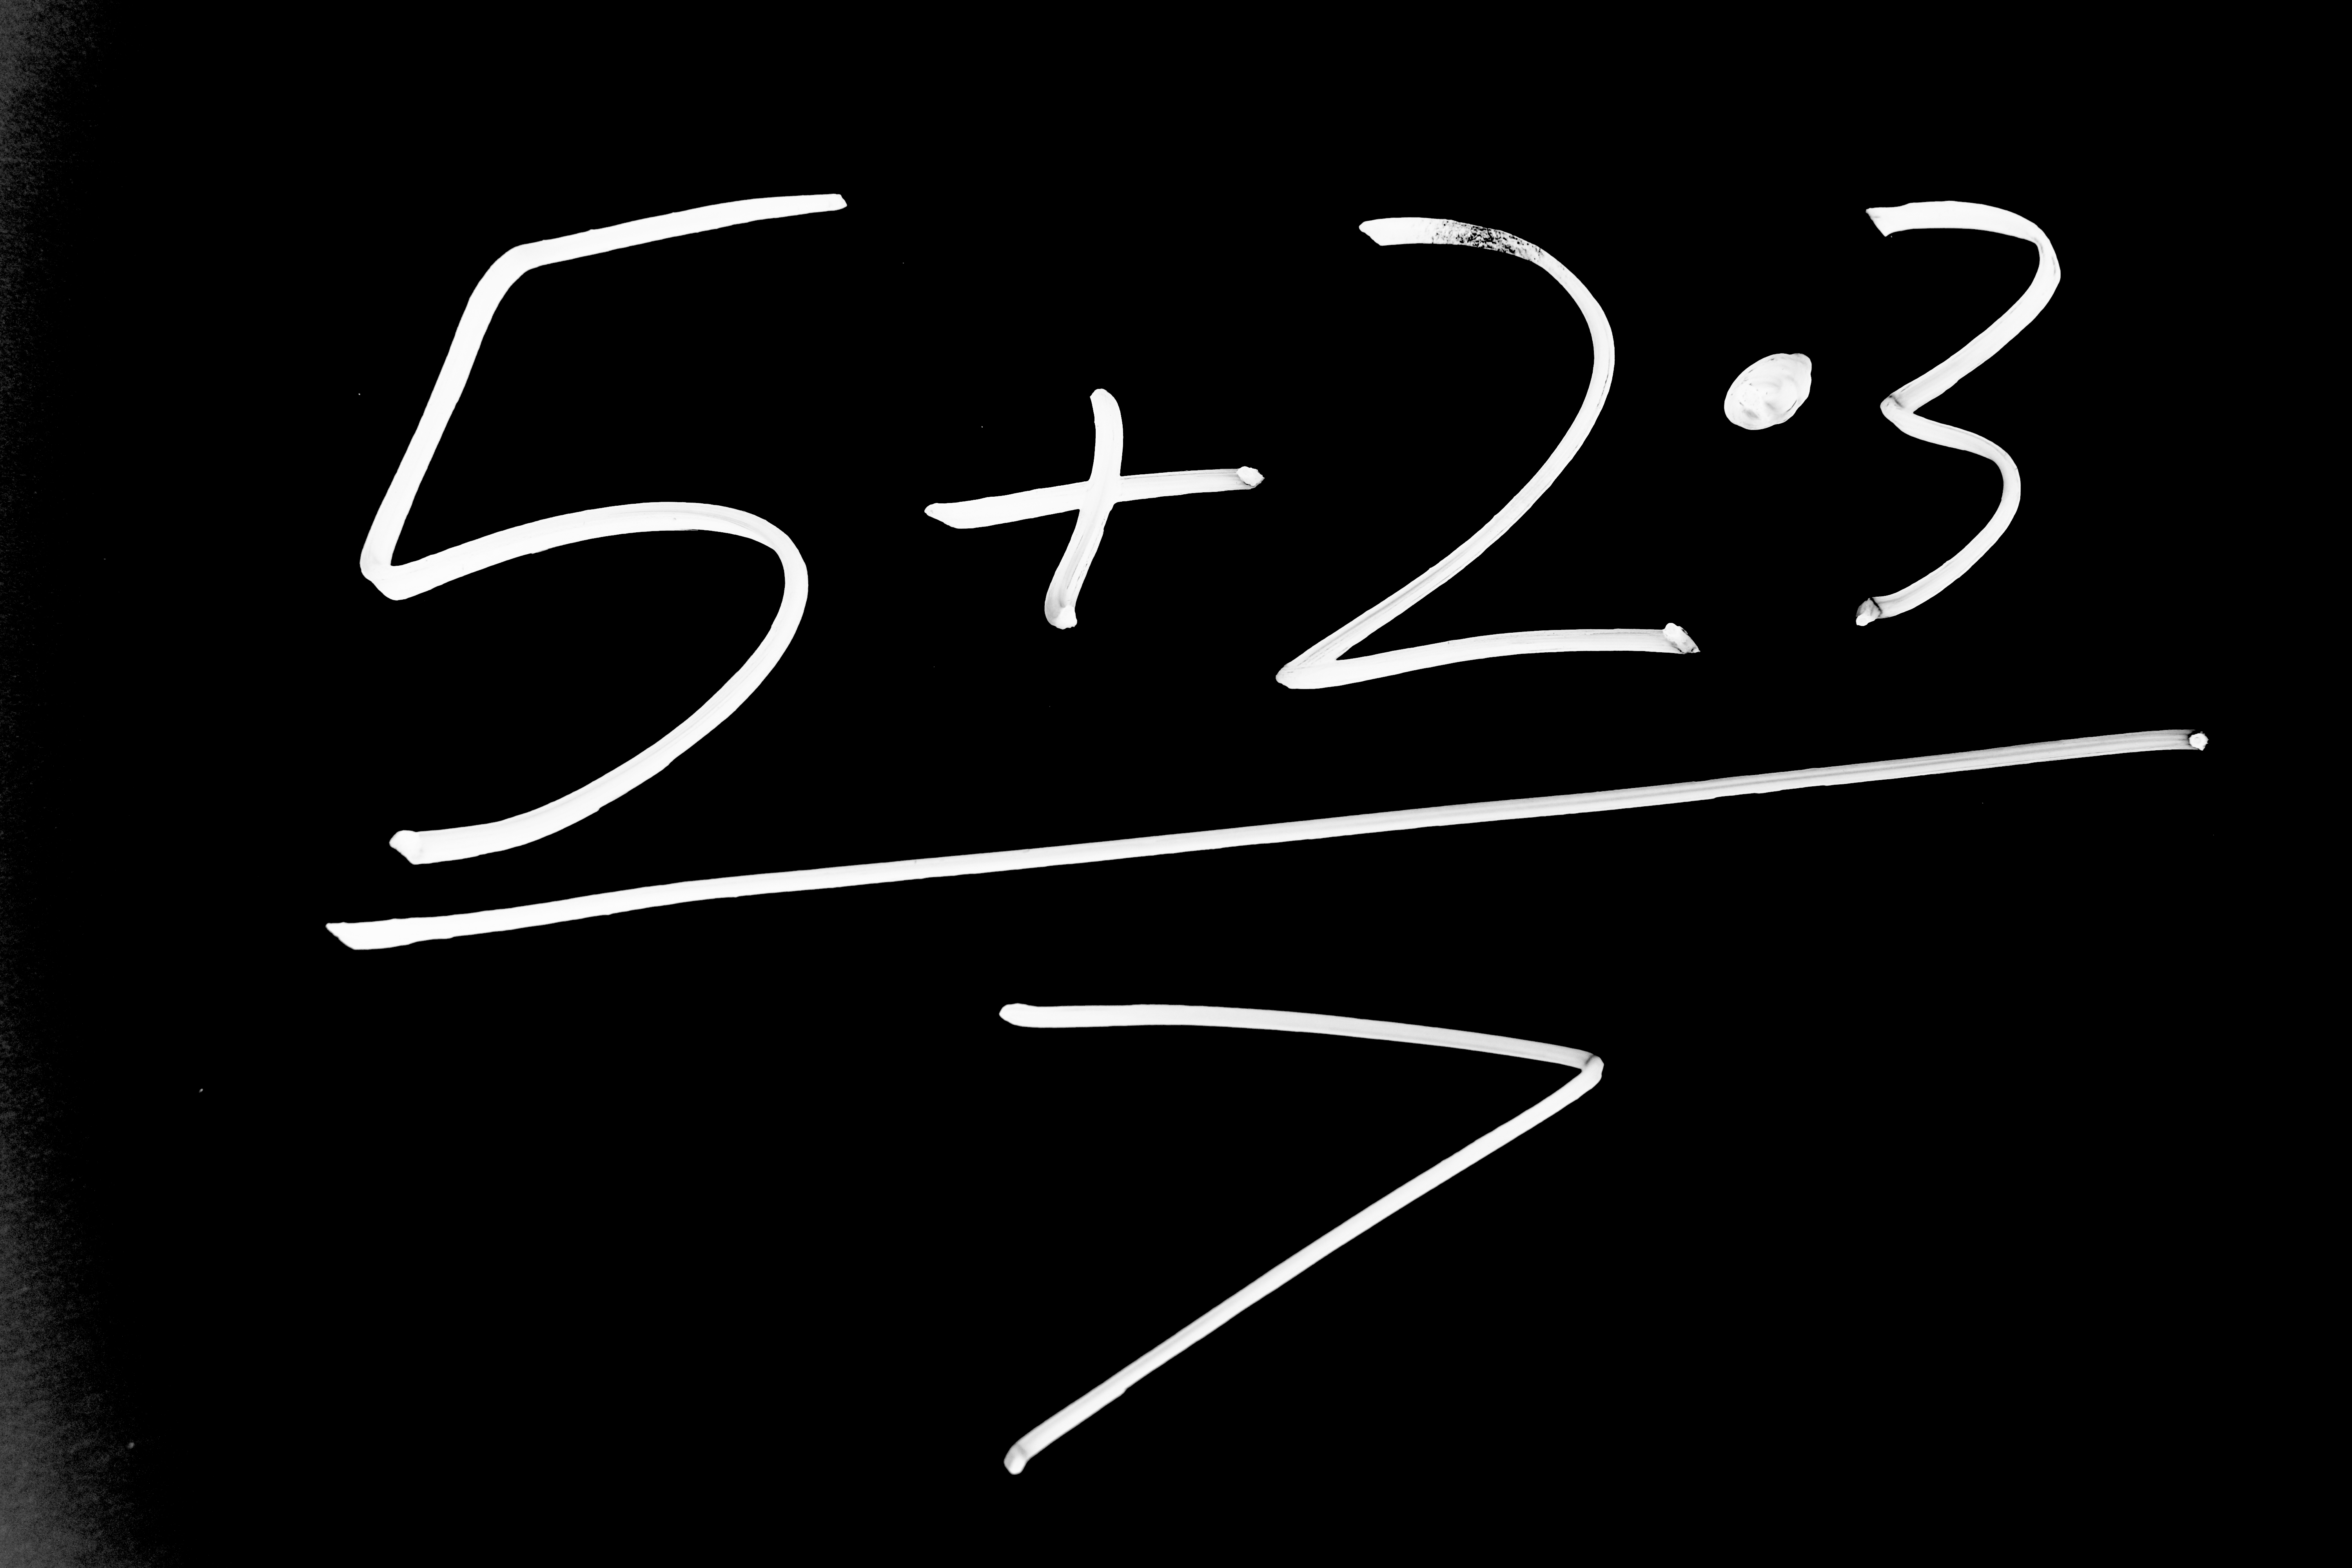 5+2·3
7